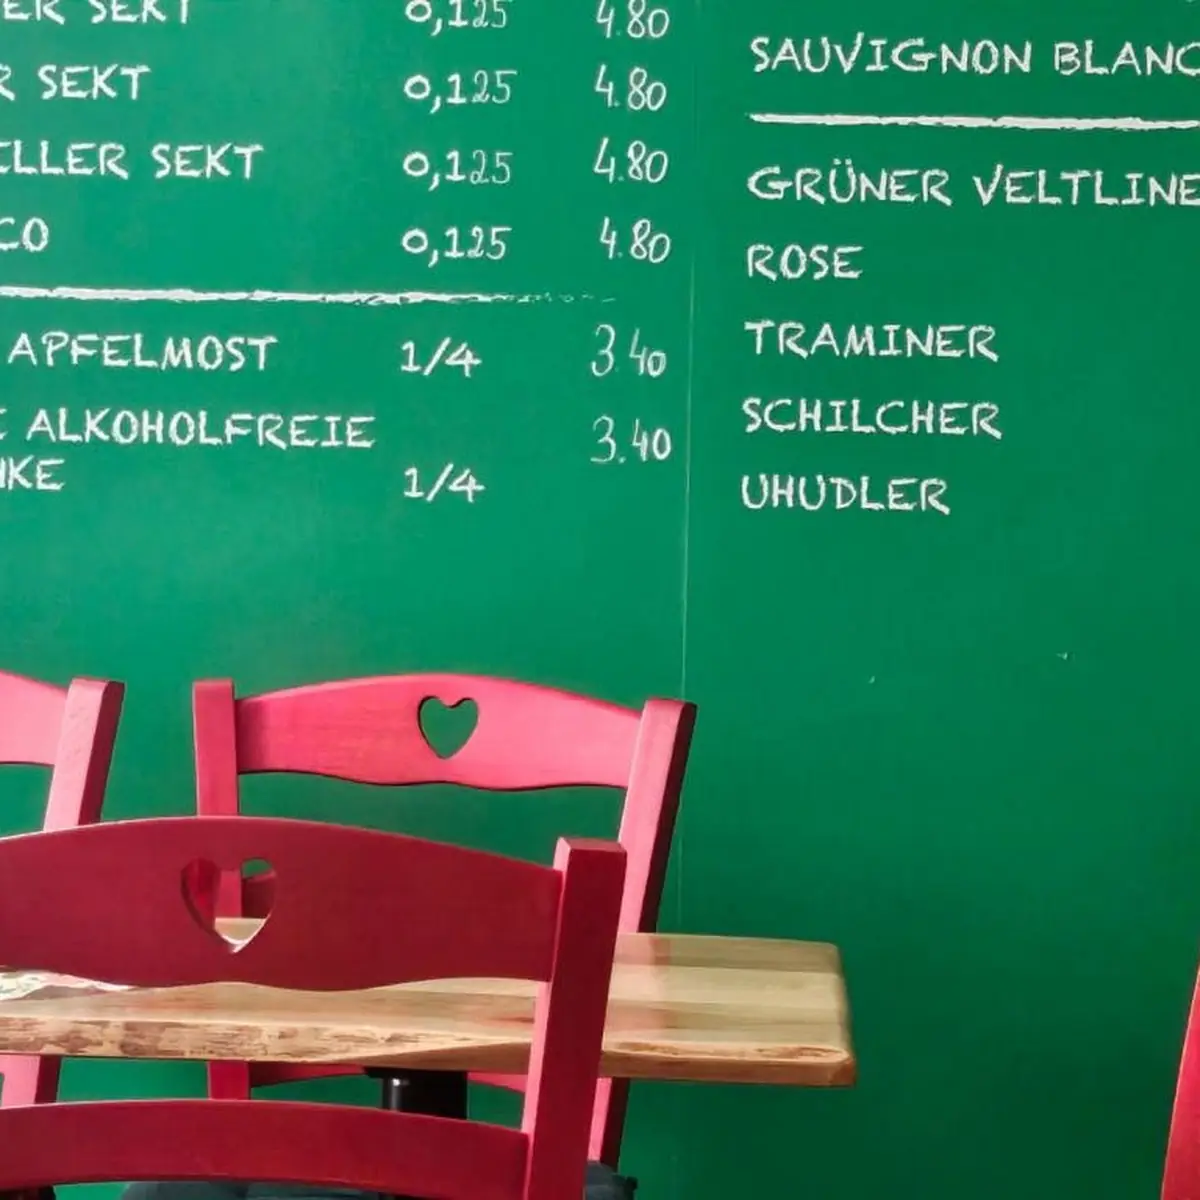 ER SEKT 0,125 4.80
R SEKT 0,125 4.80
ELLER SEKT 0,125 4.80
CO 0,125 4.80
APFELMOST 1/4 3.40
E ALKOHOLFREIE 3.40
NKE 1/4
SAUVIGNON BLANC
GRÜNER VELTLINE
ROSE
TRAMINER
SCHILCHER
UHUDLER